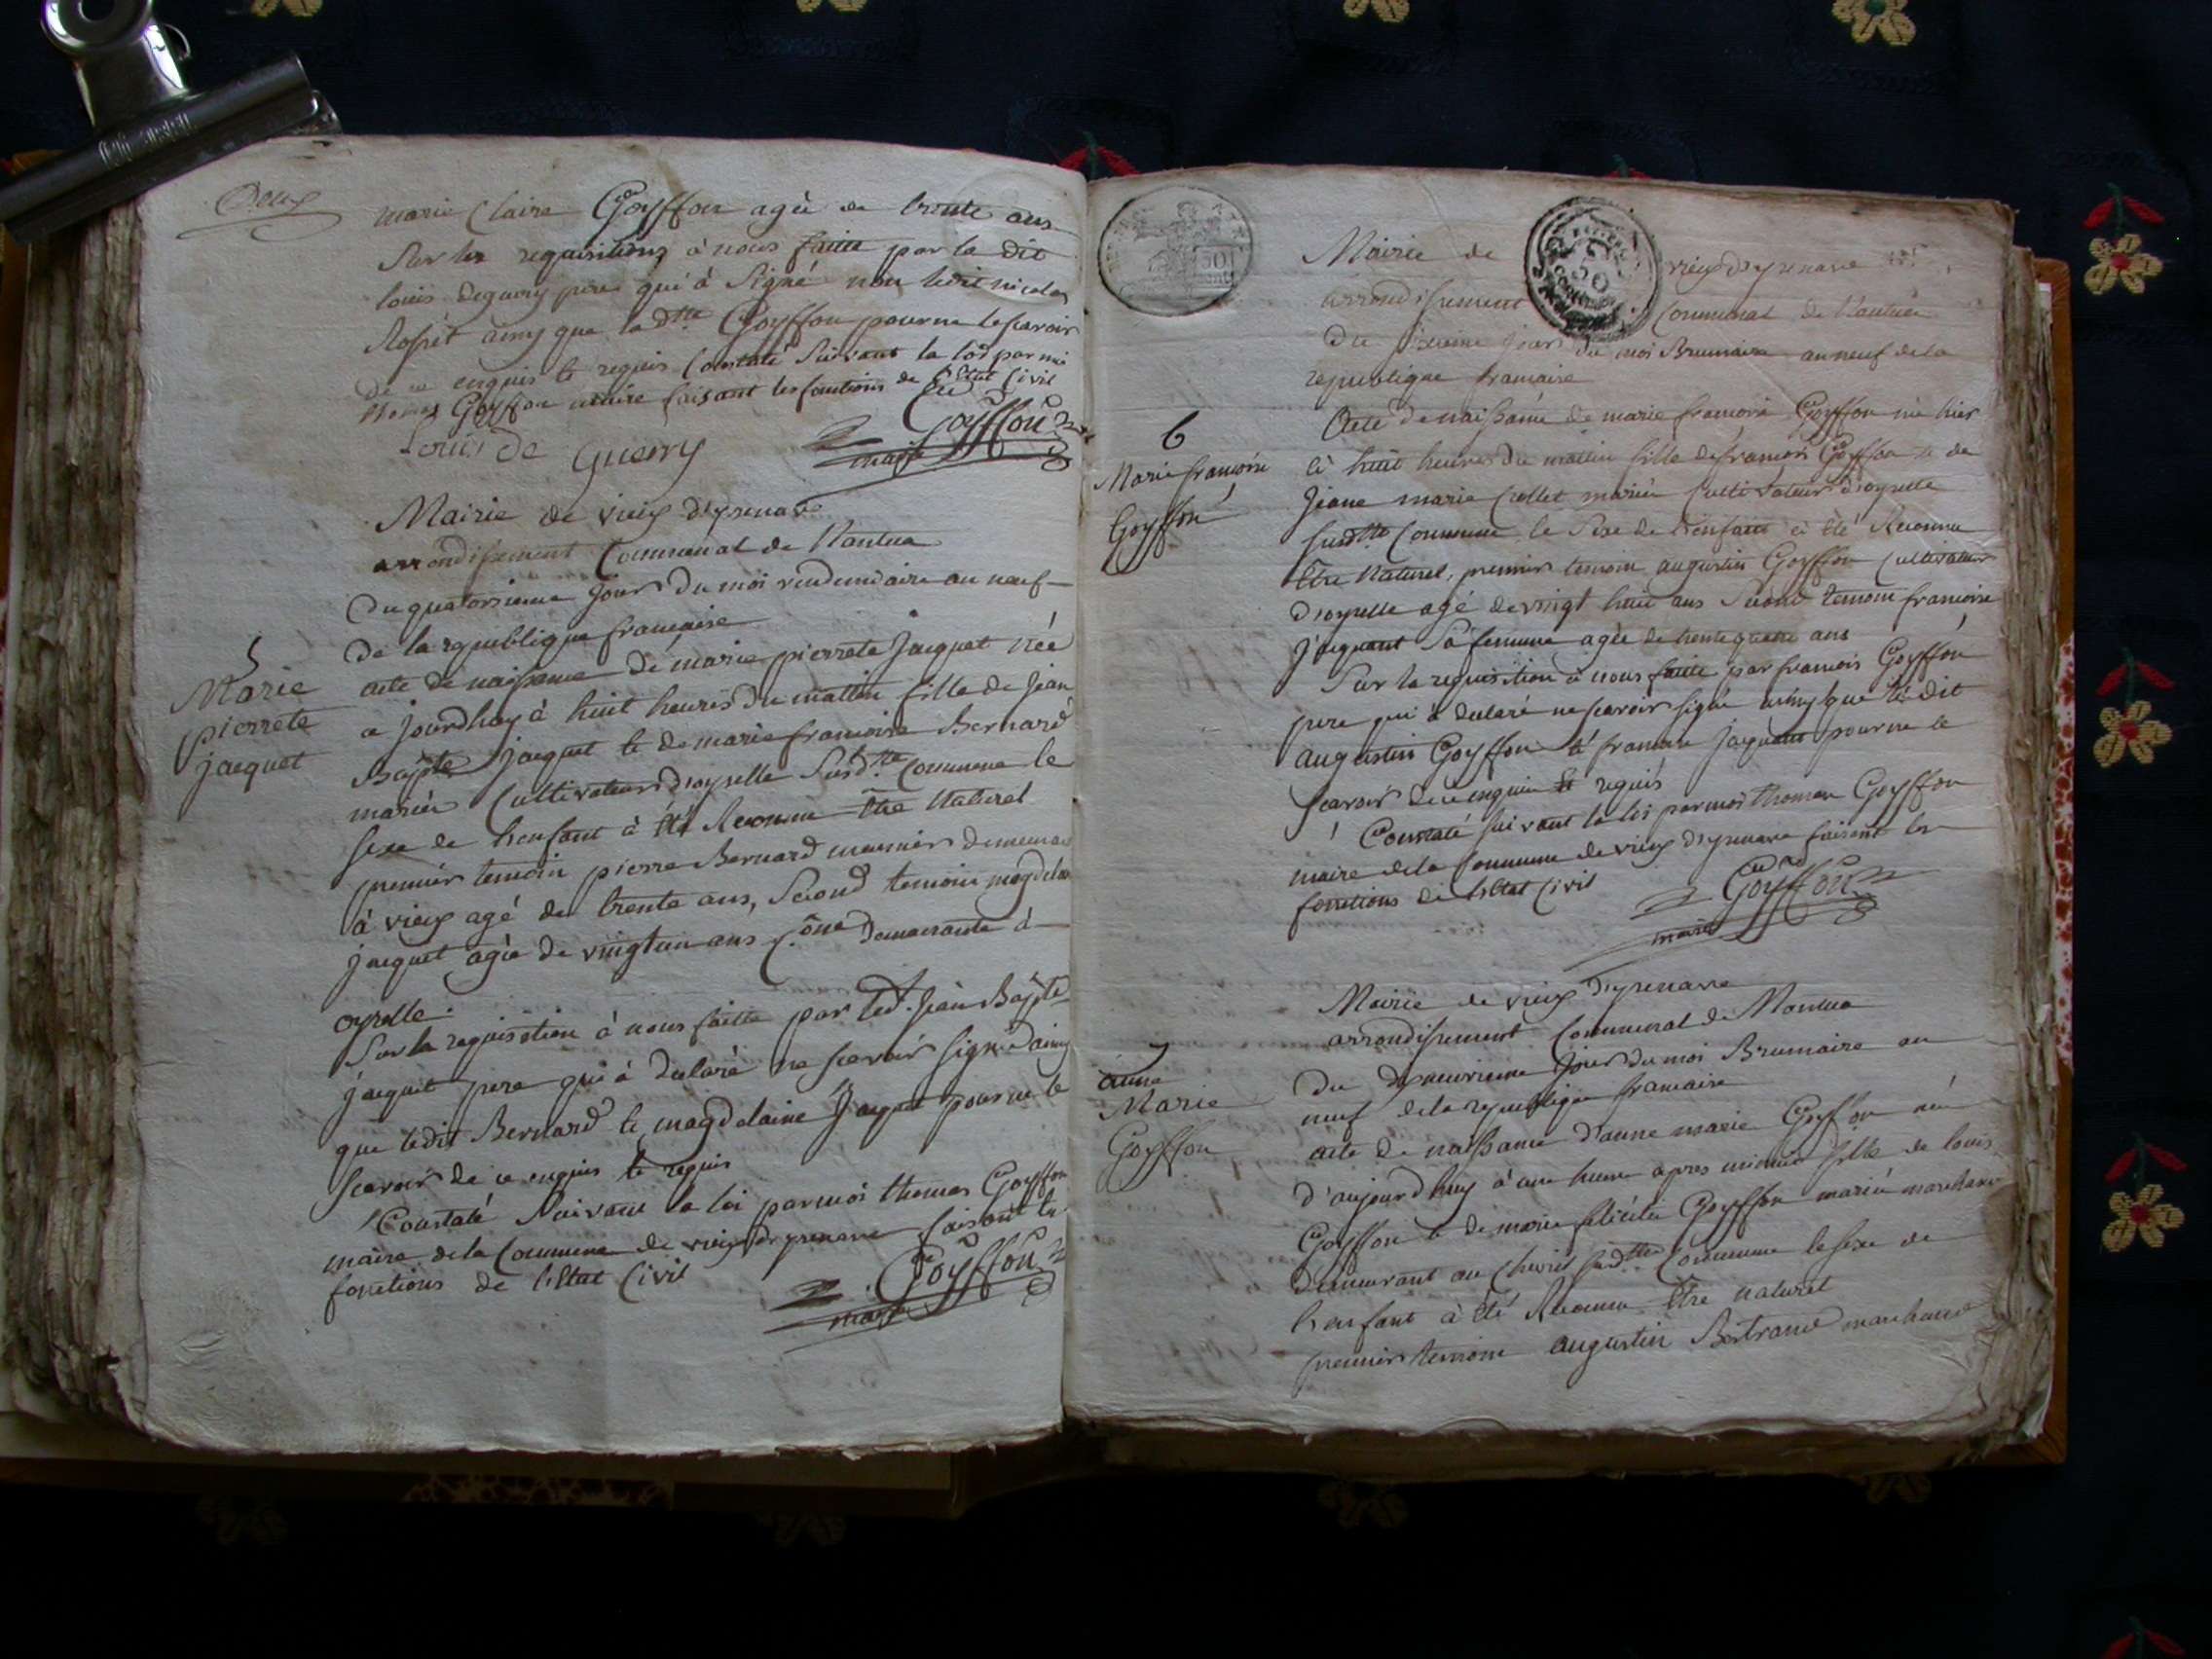 Deux
marie Claire Goyffon agée de trente ans
Sur les requisitions à nous faitte par le dit
louis deguery pere qui à Signé non ledit nicolas
ainsy que la dtte Goyffon pour ne le scavoir
de ce enquis et requis Constaté Suivant la loi par moi
thomas Goyffon maire faisant les fonctions de l'Etat Civil
Louis De Guerry
Goyffon
maire
Mairie de vieux d'yzenave
arrondissement Communal de Nantua
Du quatorsieme jour du moi vendemiaire an neuf
de la republique francaise
5
Marie
pierrete
jacquet
acte de naissance de marie pierrete Jacquet née
a jourdhuy à huit heures du mattin fille de Jean
Bapte Jacquet et de marie francoise Bernard
mariés Cultivateurs d'oyselle Susdtte Commune le
sexe de l'enfant à été Reconnu être Naturel
premier temoin pierre Bernard meunier
à vieux agé de trente ans, Second temoin
jacquet agée de vingt un ans demeurante à
oyselle.
Sur la requisition à nous faitte par led. Jean Bapte
jacquet pere qui à declaré ne scavoir signé ainsy
que ledit Bernard et magdelaine Jacquet pour ne le
scavoir de ce enquis et requis
Constaté Suivant la loi par moi thomas Goyffon
maire de la Commune de vieux d'yzenave faisant les
fonctions de l'Etat Civil
Goyffon
maire
50
Mairie de vieux d'yzenave
arrondissement Communal de Nantua
Du jour du moi Brumaire an neuf de la
republique francaise
6
Marie francoise
Goyffon
Acte de naissance de marie francoise Goyffon née hier
à huit heures du mattin fille de francois Goyffon et de
Jeane marie Collet mariés Cultivateurs d'oyselle
susdtte Commune, le Sexe de l'enfant à été Reconnu
être Naturel, premier temoin augustin Goyffon Cultivateur
d'oyselle agé de vingt huit ans Second temoin francoise
Jacquant Sa femme agée de trente quatre ans
Sur la requisition à nous faitte par francois Goyffon
pere qui à declaré ne scavoir signé ainsy que le dit
augustin Goyffon et francoise Jacquant pour ne le
scavoir de ce enquis et requis
Constaté suivant la loi par moi thomas Goyffon
maire de la Commune de vieux d'yzenave faisant les
fonctions de l'Etat Civil
Goyffon
maire
Mairie de vieux d'yzenave
arrondissement Communal de Nantua
7
anne
Marie
Goyffon
Du dixneuvieme jour du moi Brumaire an
neuf de la republique francaise
acte de naissance d'anne marie Goyffon née
d'aujourdhuy à une heure apres minuit fille de louis
Goyffon et de marie felicité Goyffon mariés marchand
demeurant au Chevril susdtte Commune le sexe de
l'enfant à été Reconnu être naturel
premier temoin augustin Bertrand marchand